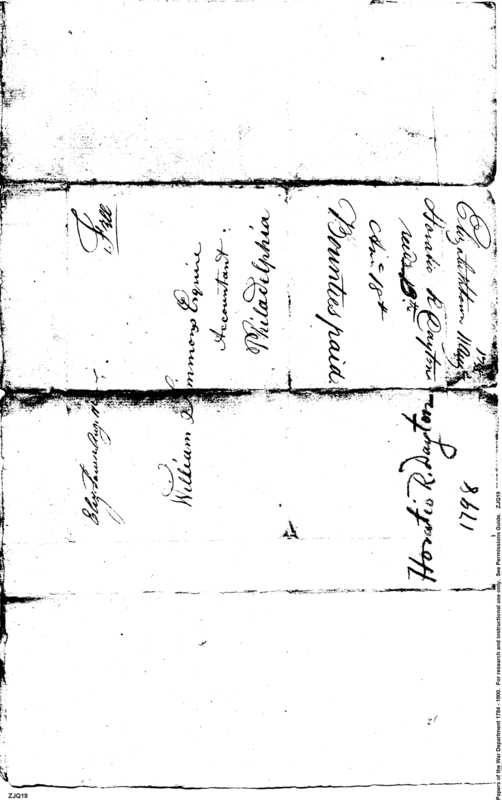 Free
Eliz Town May
William Simmons Esquire
Accountant.
Philadelphia
Elizabethtown May
Horatio R Dayton
18th
Bounties paid
Horatio R. Dayton
1798
Papers of the War Department 1784 - 1800. For research and instructional use only. See Permissions Guide. ZJQ19
ZJQ19